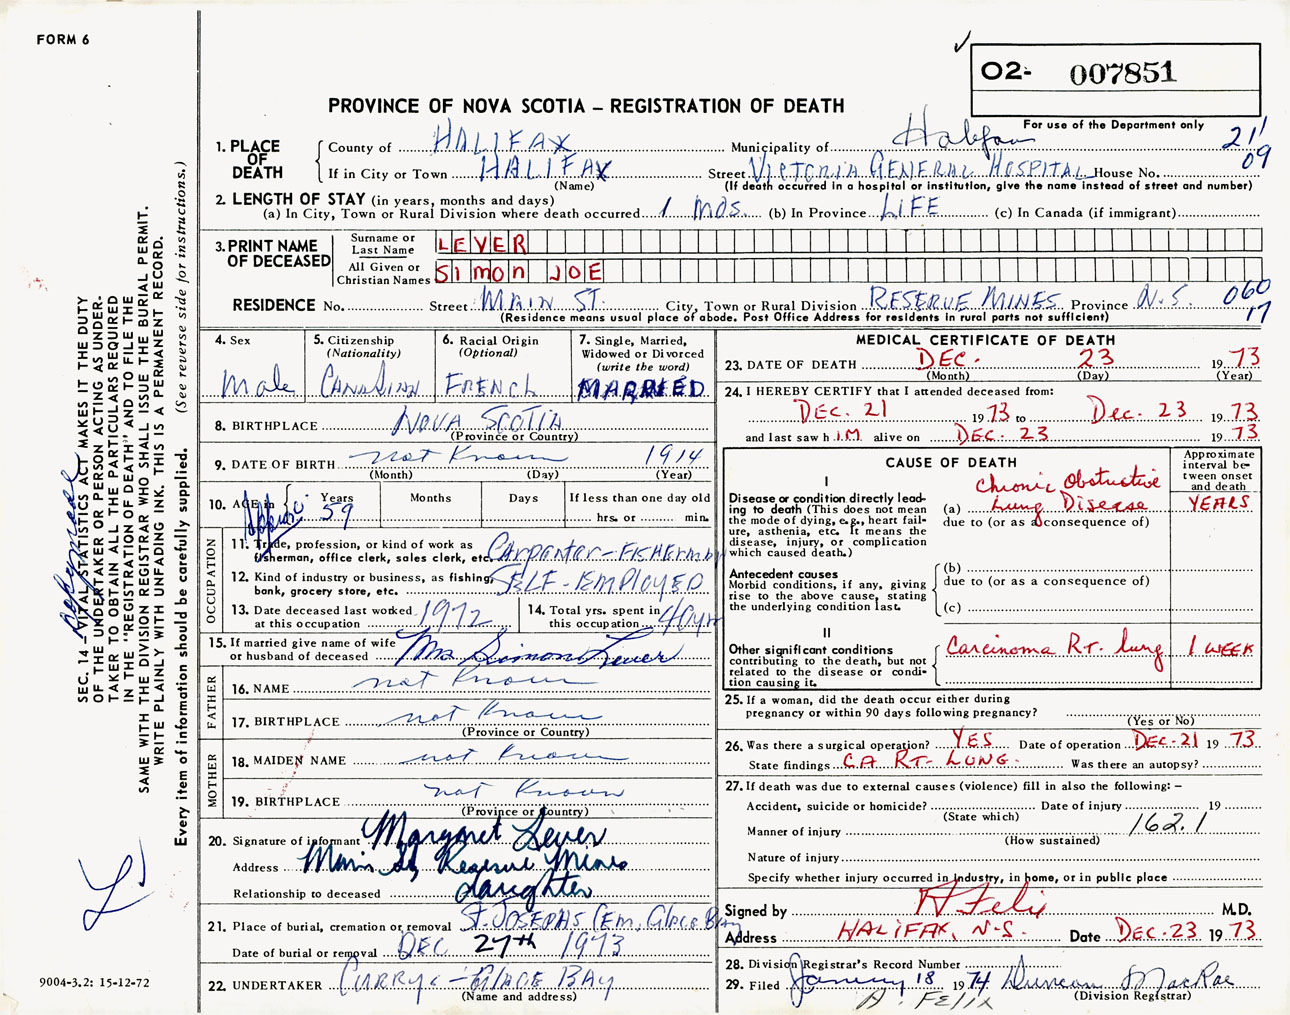 FORM 6
02- 007851
PROVINCE OF NOVA SCOTIA – REGISTRATION OF DEATH
For use of the Department only
1. PLACE OF DEATH
County of HALIFAX Municipality of Halifax 21
If in City or Town HALIFAX Street VICTORIA GENERAL HOSPITAL House No. 09
(Name) (If death occurred in a hospital or institution, give the name instead of street and number)
2. LENGTH OF STAY (in years, months and days)
(a) In City, Town or Rural Division where death occurred 1 MOS. (b) In Province LIFE (c) In Canada (if immigrant)
3. PRINT NAME OF DECEASED
Surname or Last Name LEVER
All Given or Christian Names SIMON JOE
RESIDENCE No. Street MAIN ST. City, Town or Rural Division RESERVE MINES Province N.S. 060
(Residence means usual place of abode. Post Office Address for residents in rural parts not sufficient) 17
4. Sex Male
5. Citizenship (Nationality) CANADIAN
6. Racial Origin (Optional) FRENCH
7. Single, Married, Widowed or Divorced (write the word) MARRIED
8. BIRTHPLACE NOVA SCOTIA
(Province or Country)
9. DATE OF BIRTH not Known 1914
(Month) (Day) (Year)
10. AGE in Years 59 Months Days If less than one day old
hrs. or min.
OCCUPATION
11. Trade, profession, or kind of work as fisherman, office clerk, sales clerk, etc. Carpenter-FISHERMAN
12. Kind of industry or business, as fishing, bank, grocery store, etc. SELF-EMPLOYED
13. Date deceased last worked at this occupation 1972
14. Total yrs. spent in this occupation 40 yrs
15. If married give name of wife or husband of deceased Mrs Simon Lever
FATHER
16. NAME not Known
17. BIRTHPLACE not Known
(Province or Country)
MOTHER
18. MAIDEN NAME not Known
19. BIRTHPLACE not Known
(Province or Country)
20. Signature of informant Margaret Lever
Address Main St, Reserve Mines
Relationship to deceased daughter
21. Place of burial, cremation or removal ST. JOSEPHS CEM, GLACE BAY
Date of burial or removal DEC 27th 1973
22. UNDERTAKER CURRY'S - GLACE BAY
(Name and address)
MEDICAL CERTIFICATE OF DEATH
23. DATE OF DEATH DEC. 23 1973
(Month) (Day) (Year)
24. I HEREBY CERTIFY that I attended deceased from:
DEC. 21 1973 to Dec. 23 1973
and last saw h IM alive on DEC. 23 1973
CAUSE OF DEATH
Approximate interval between onset and death
I
Disease or condition directly leading to death (This does not mean the mode of dying, e.g., heart failure, asthenia, etc. It means the disease, injury, or complication which caused death.)
(a) Chronic Obstructive Lung Disease YEARS
due to (or as a consequence of)
Antecedent causes
Morbid conditions, if any, giving rise to the above cause, stating the underlying condition last.
(b)
due to (or as a consequence of)
(c)
II
Other significant conditions contributing to the death, but not related to the disease or condition causing it.
Carcinoma Rt. Lung 1 WEEK
25. If a woman, did the death occur either during pregnancy or within 90 days following pregnancy?
(Yes or No)
26. Was there a surgical operation? YES Date of operation DEC. 21 1973
State findings CA RT- LUNG. Was there an autopsy?
27. If death was due to external causes (violence) fill in also the following: –
Accident, suicide or homicide? Date of injury 19
(State which)
Manner of injury 162.1
(How sustained)
Nature of injury
Specify whether injury occurred in industry, in home, or in public place
Signed by A Felix M.D.
Address HALIFAX, N.S. Date DEC. 23 1973
28. Division Registrar's Record Number
29. Filed January 18 1974 Duncan MacRae
A. FELIX (Division Registrar)
SEC. 14 – VITAL STATISTICS ACT MAKES IT THE DUTY
OF THE UNDERTAKER OR PERSON ACTING AS UNDER-
TAKER TO OBTAIN ALL THE PARTICULARS REQUIRED
IN THE "REGISTRATION OF DEATH" AND TO FILE THE
SAME WITH THE DIVISION REGISTRAR WHO SHALL ISSUE THE BURIAL PERMIT.
WRITE PLAINLY WITH UNFADING INK. THIS IS A PERMANENT RECORD.
Every item of information should be carefully supplied. (See reverse side for instructions.)
9004-3.2: 15-12-72